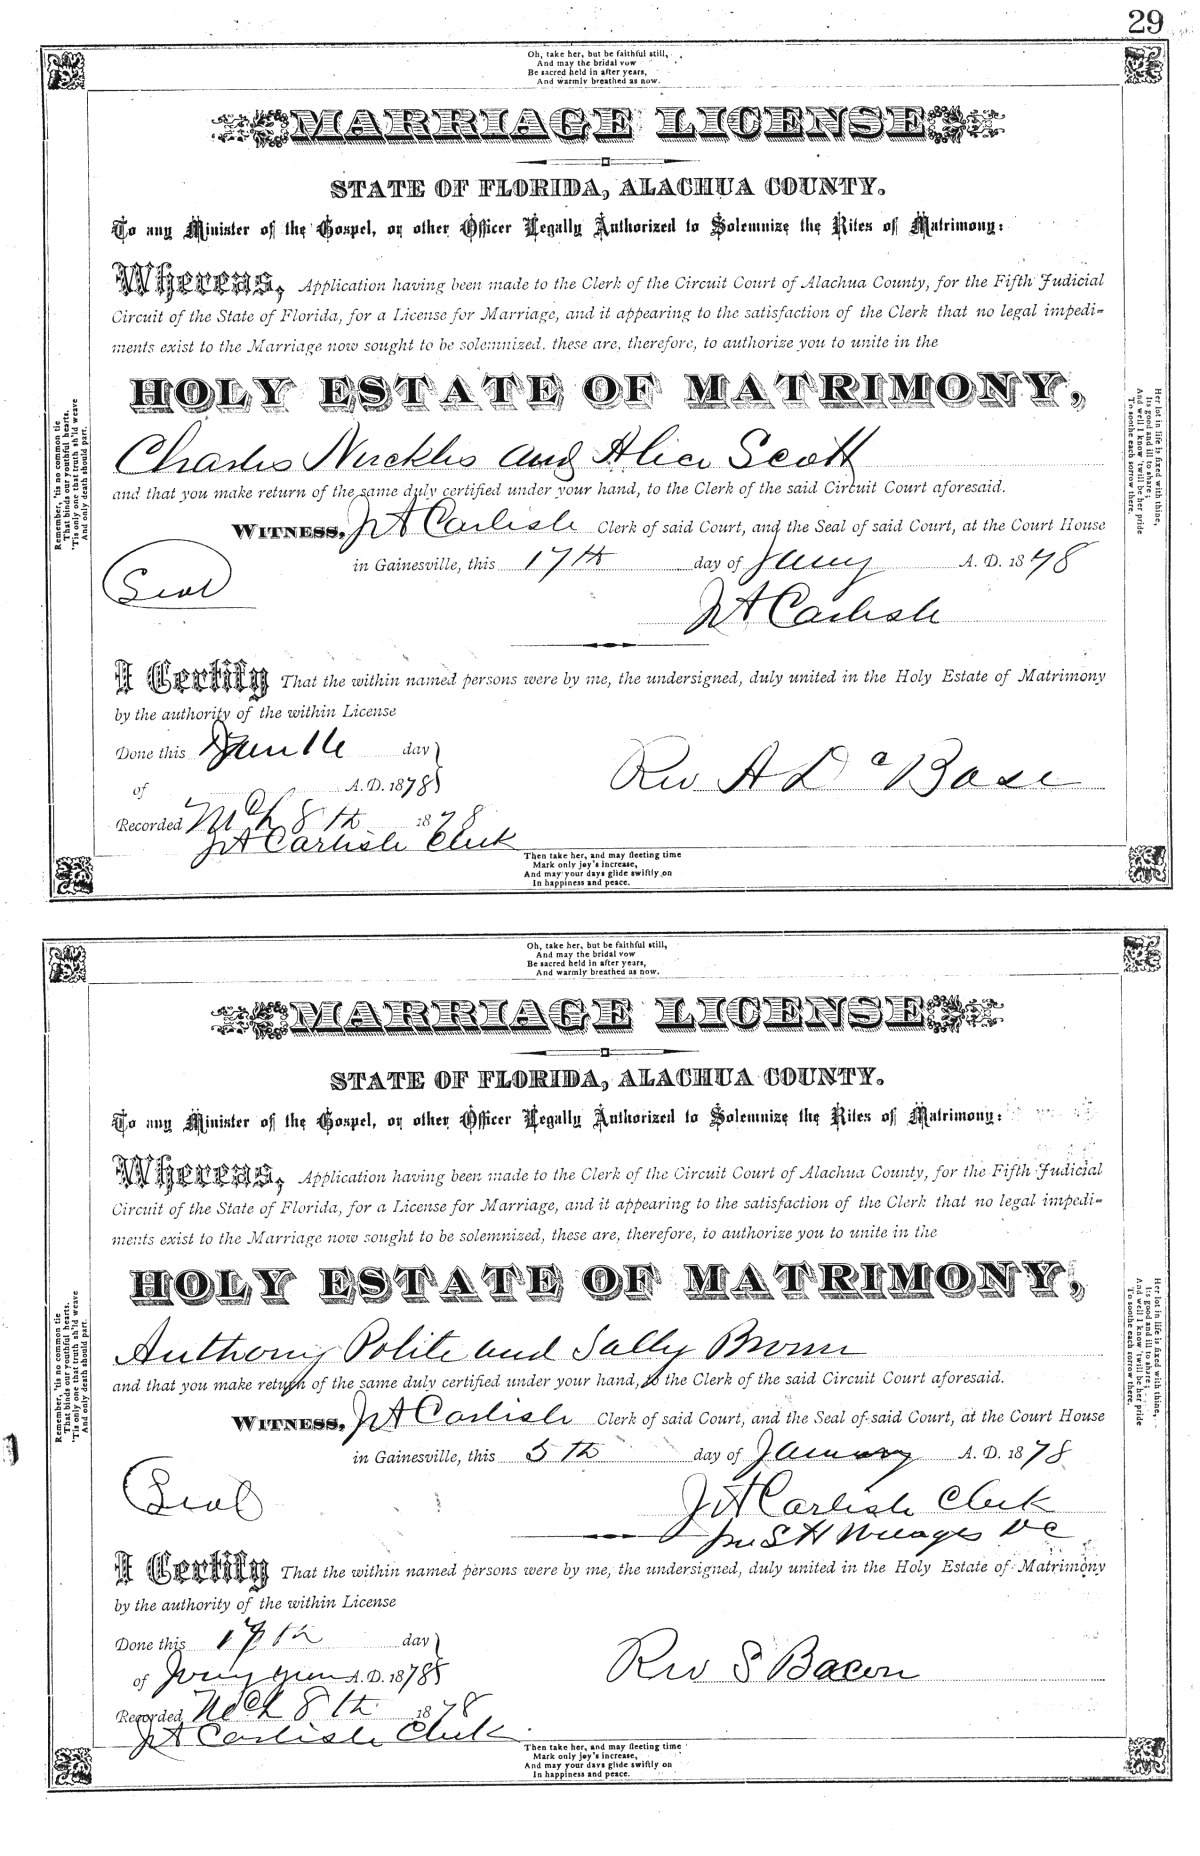 29
Oh, take her, but be faithful still,
And may the bridal vow
Be sacred held in after years,
And warmly breathed as now.
MARRIAGE LICENSE
STATE OF FLORIDA, ALACHUA COUNTY.
To any Minister of the Gospel, or other Officer Legally Authorized to Solemnize the Rites of Matrimony:
Whereas, Application having been made to the Clerk of the Circuit Court of Alachua County, for the Fifth Judicial
Circuit of the State of Florida, for a License for Marriage, and it appearing to the satisfaction of the Clerk that no legal impedi-
ments exist to the Marriage now sought to be solemnized, these are, therefore, to authorize you to unite in the
HOLY ESTATE OF MATRIMONY,
Charles Nuckles and Alice Scott
and that you make return of the same duly certified under your hand, to the Clerk of the said Circuit Court aforesaid.
WITNESS, J A Carlisle Clerk of said Court, and the Seal of said Court, at the Court House
in Gainesville, this 17th day of Jany A. D. 1878
Seal
J A Carlisle
I Certify That the within named persons were by me, the undersigned, duly united in the Holy Estate of Matrimony
by the authority of the within License
Done this day
of A. D. 1878
Rev A
Recorded Mch 8th 1878
J A Carlisle Clerk
Then take her, and may fleeting time
Mark only joy's increase,
And may your days glide swiftly on
In happiness and peace.
Remember, 'tis no common tie
That binds our youthful hearts,
'Tis only one that truth sh'ld weave
And only death should part.
Her lot in life is fixed with thine,
Its good and ill to share;
And well I know 'twill be her pride
To soothe each sorrow there.
Oh, take her, but be faithful still,
And may the bridal vow
Be sacred held in after years,
And warmly breathed as now.
MARRIAGE LICENSE
STATE OF FLORIDA, ALACHUA COUNTY.
To any Minister of the Gospel, or other Officer Legally Authorized to Solemnize the Rites of Matrimony:
Whereas, Application having been made to the Clerk of the Circuit Court of Alachua County, for the Fifth Judicial
Circuit of the State of Florida, for a License for Marriage, and it appearing to the satisfaction of the Clerk that no legal impedi-
ments exist to the Marriage now sought to be solemnized, these are, therefore, to authorize you to unite in the
HOLY ESTATE OF MATRIMONY,
Anthony Polite and Sally Brown
and that you make return of the same duly certified under your hand, to the Clerk of the said Circuit Court aforesaid.
WITNESS, J A Carlisle Clerk of said Court, and the Seal of said Court, at the Court House
in Gainesville, this 5th day of January A. D. 1878
Seal
J A Carlisle Clerk
S H DC
I Certify That the within named persons were by me, the undersigned, duly united in the Holy Estate of Matrimony
by the authority of the within License
Done this 17th day
of A. D. 1878
Rev S Bacon
Recorded Mch 8th 1878
J A Carlisle Clerk
Then take her, and may fleeting time
Mark only joy's increase,
And may your days glide swiftly on
In happiness and peace.
Remember, 'tis no common tie
That binds our youthful hearts,
'Tis only one that truth sh'ld weave
And only death should part.
Her lot in life is fixed with thine,
Its good and ill to share;
And well I know 'twill be her pride
To soothe each sorrow there.